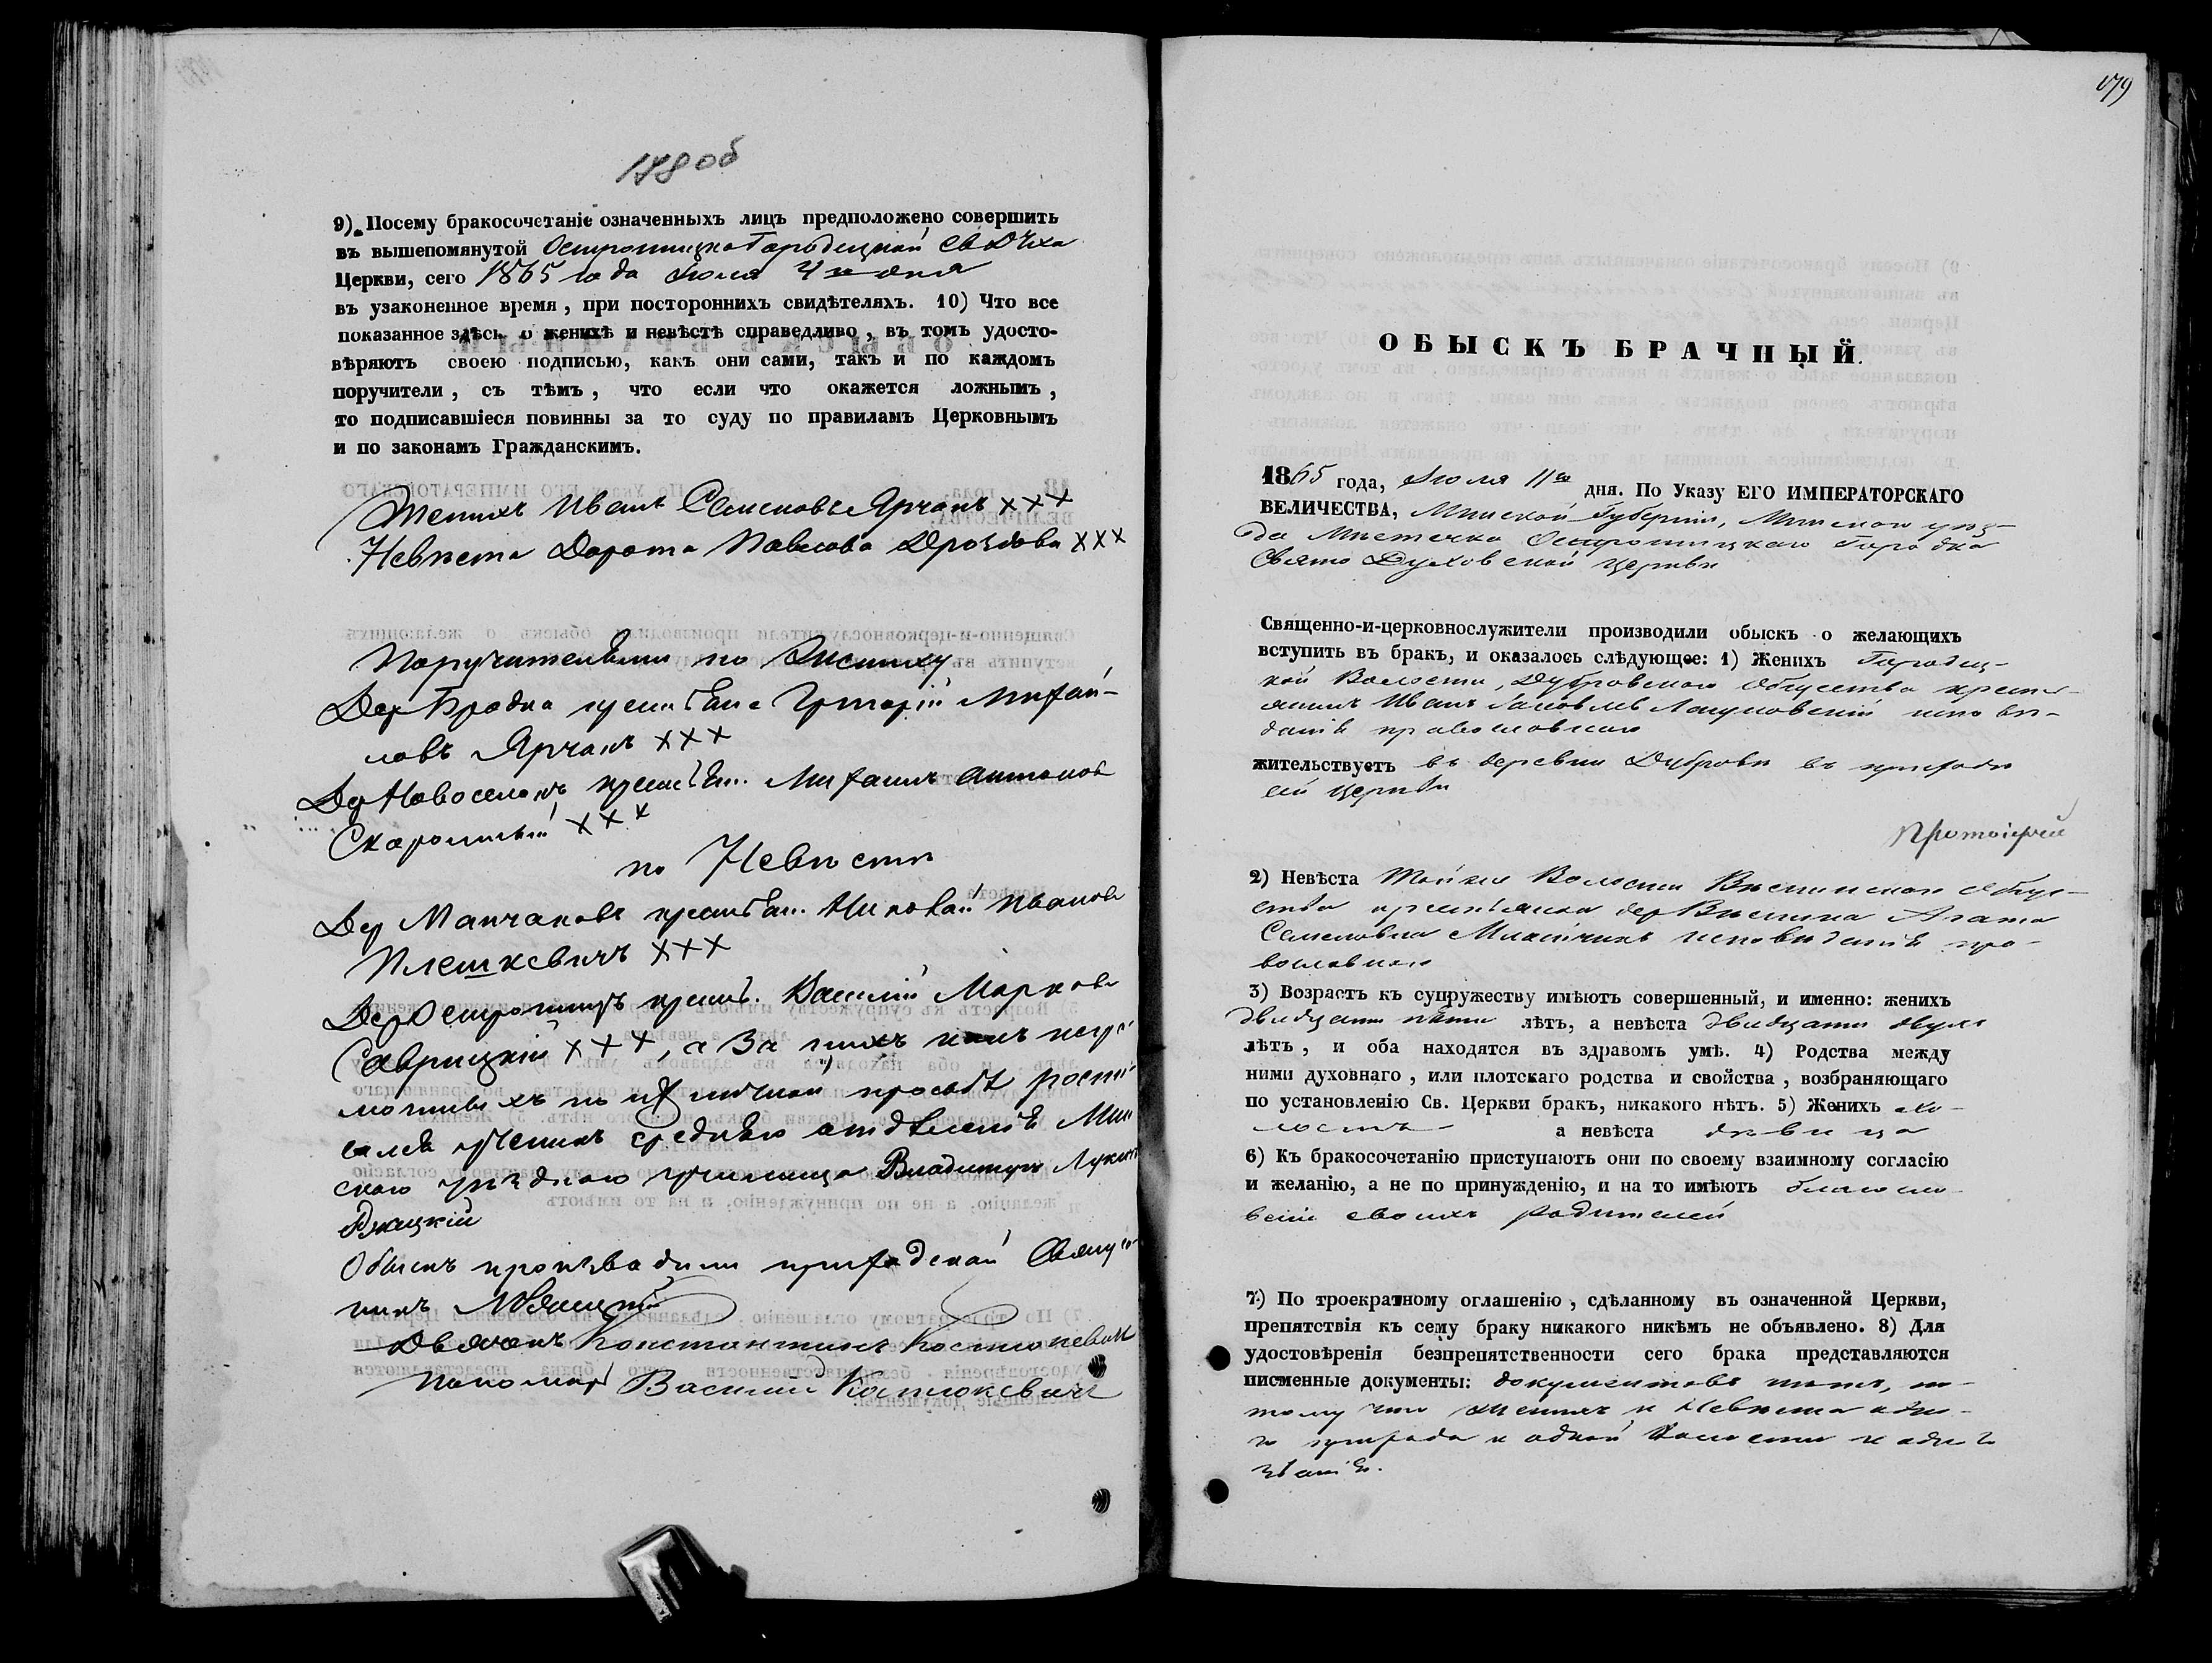 178 об
9) Посему бракосочетаніе означенныхъ лицъ предположено совершить
въ вышепомянутой Острошицко Городецкой Св Духа
Церкви, сего 1865 года Июля 4го дня
въ узаконенное время, при постороннихъ свидѣтеляхъ. 10) Что все
показанное здѣсь о женихѣ и невѣстѣ справедливо, въ томъ удосто-
вѣряютъ своею подписью, какъ они сами, такъ и по каждомъ
поручители, съ тѣмъ, что если что окажется ложнымъ,
то подписавшіеся повинны за то суду по правиламъ Церковнымъ
и по законамъ Гражданскимъ.
Женихъ Иванъ Семеновъ Ярчакъ ххх
Невѣста Дорота Павлова Дроздова ххх
Поручителями по Жениху
Дер Бродка крестьян Григорій Михай-
ловъ Ярчакъ ххх
Дер Новоселокъ крестьян. Михаилъ Антонов
ххх
по Невѣсти
Дер крестьян. Николай Иванов
Плешкевичъ ххх
Дер Острошицъ крест. Василій Марков
Саврицкій ххх, а За нихъ негра-
мотныхъ по их личной просьбѣ роспи-
сался ученикъ средняго отдѣленія Мин
скаго уѣзднаго училища Владимиръ Лукин
Обыскъ производили приходской Священ-
никъ
Дьячокъ Константинъ Костюкевич
Пономарь Василій Костюкевичъ
179
ОБЫСКЪ БРАЧНЫЙ.
1865 года, Июля 11го дня. По Указу ЕГО ИМПЕРАТОРСКАГО
ВЕЛИЧЕСТВА, Минской Губерніи, Минскаго уѣз-
да Мѣстечка Острошицкаго Городка
Свято Духовской Церкви
Священно-и-церковнослужители производили обыскъ о желающихъ
вступить въ бракъ, и оказалось слѣдующее: 1) Женихъ Городец-
кой Волости, Дубровскаго Общества кресть-
янинъ Иванъ Яковлев исповѣ-
данія православнаго
жительствуетъ въ деревни Дуброви въ приходи
сей Церкви
Протоіерей
2) Невѣста Той же Волости общес-
тва крестьянка дер Агата
Семеновна исповѣданія пра-
вославнаго
3) Возрастъ къ супружеству имѣютъ совершенный, и именно: женихъ
двадцати пяти лѣтъ, а невѣста двадцати двухъ
лѣтъ, и оба находятся въ здравомъ умѣ. 4) Родства между
ними духовнаго, или плотскаго родства и свойства, возбраняющаго
по установленію Св. Церкви бракъ, никакого нѣтъ. 5) Женихъ хо-
лостъ а невѣста дѣвица
6) Къ бракосочетанію приступаютъ они по своему взаимному согласію
и желанію, а не по принужденію, и на то имѣютъ благосло-
веніе своихъ родителей
7) По троекратному оглашенію, сдѣланному въ означенной Церкви,
препятствія къ сему браку никакого никѣмъ не объявлено. 8) Для
удостовѣренія безпрепятственности сего брака представляются
писменные документы: документовъ нѣтъ, по-
тому что женихъ и Невѣста одно-
го прихода и одной Волости и одного
званія.